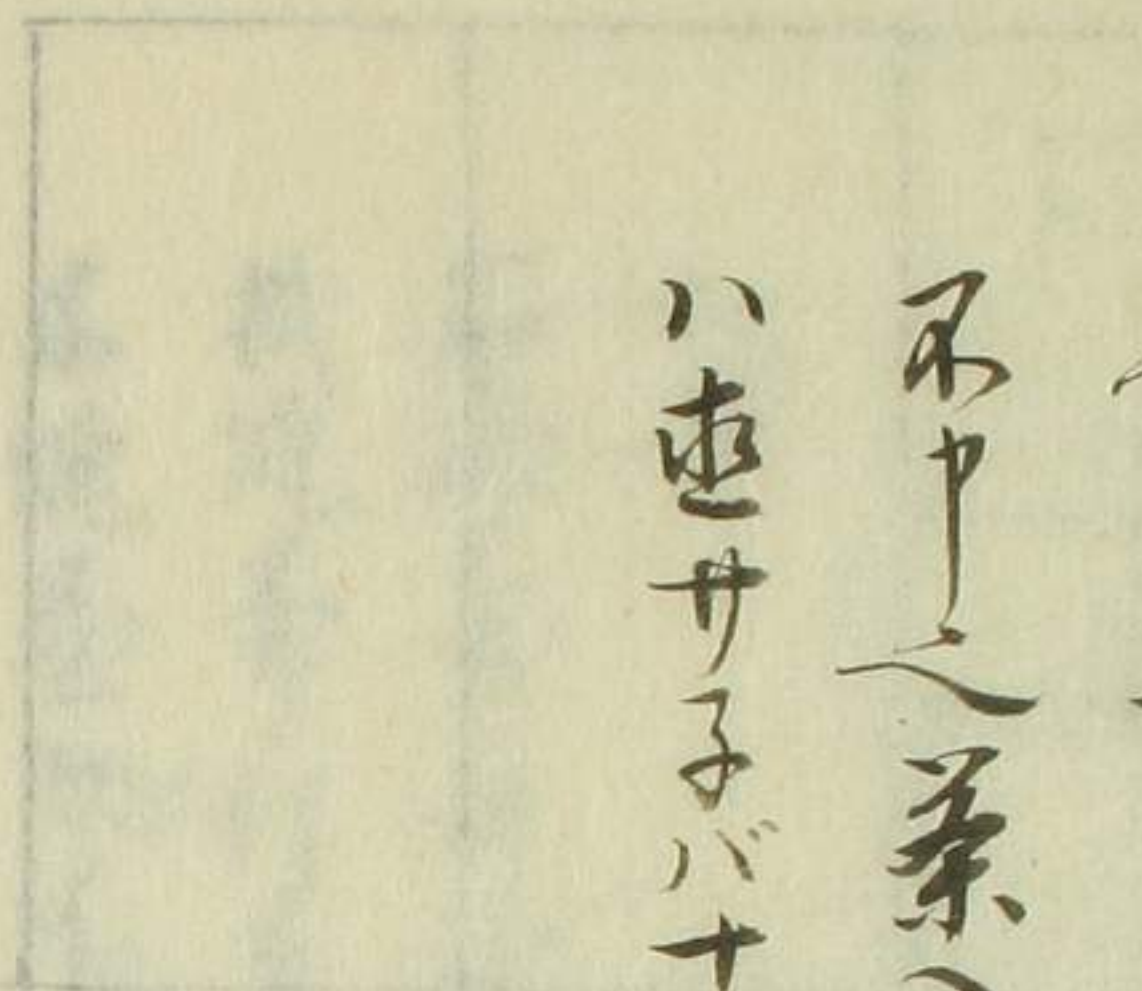 不申之業
ハ直サ子バナ